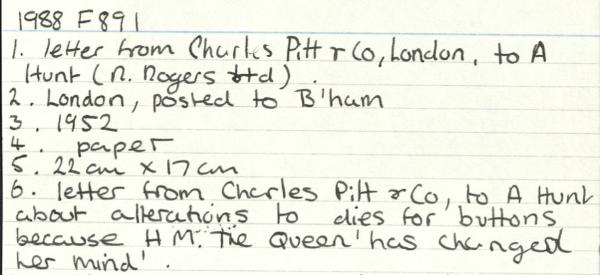 1988 F891
1. letter from Charles Pitt & Co, London, to A
Hunt (N. Nogers Ltd).
2. London, posted to B'ham
3. 1952
4. paper
5. 22cm x 17cm
6. letter from Charles Pitt & Co, to A Hunt
about alterations to dies for buttons
because H M. The Queen 'has changed
her mind'.